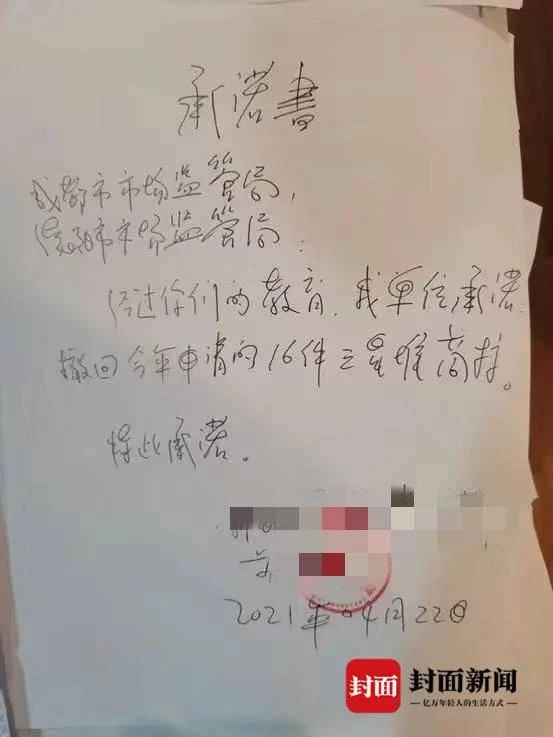 承诺書
成都市市场监管局，
德阳市市场监管局：
经过你们的教育，我单位承诺：
撤回今年申请的16件三星堆商标。
特此承诺。
2021年04月22日
封面 封面新闻
亿万年轻人的生活方式